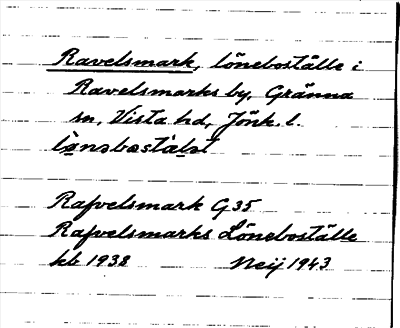 Ravelsmark, löneboställe i
Ravelsmarks by, Gränna
sn, Vista hd, Jönk. l.
Rafvelsmark G35
Rafvelsmarks Löneboställe
kb 1938 Neij 1943